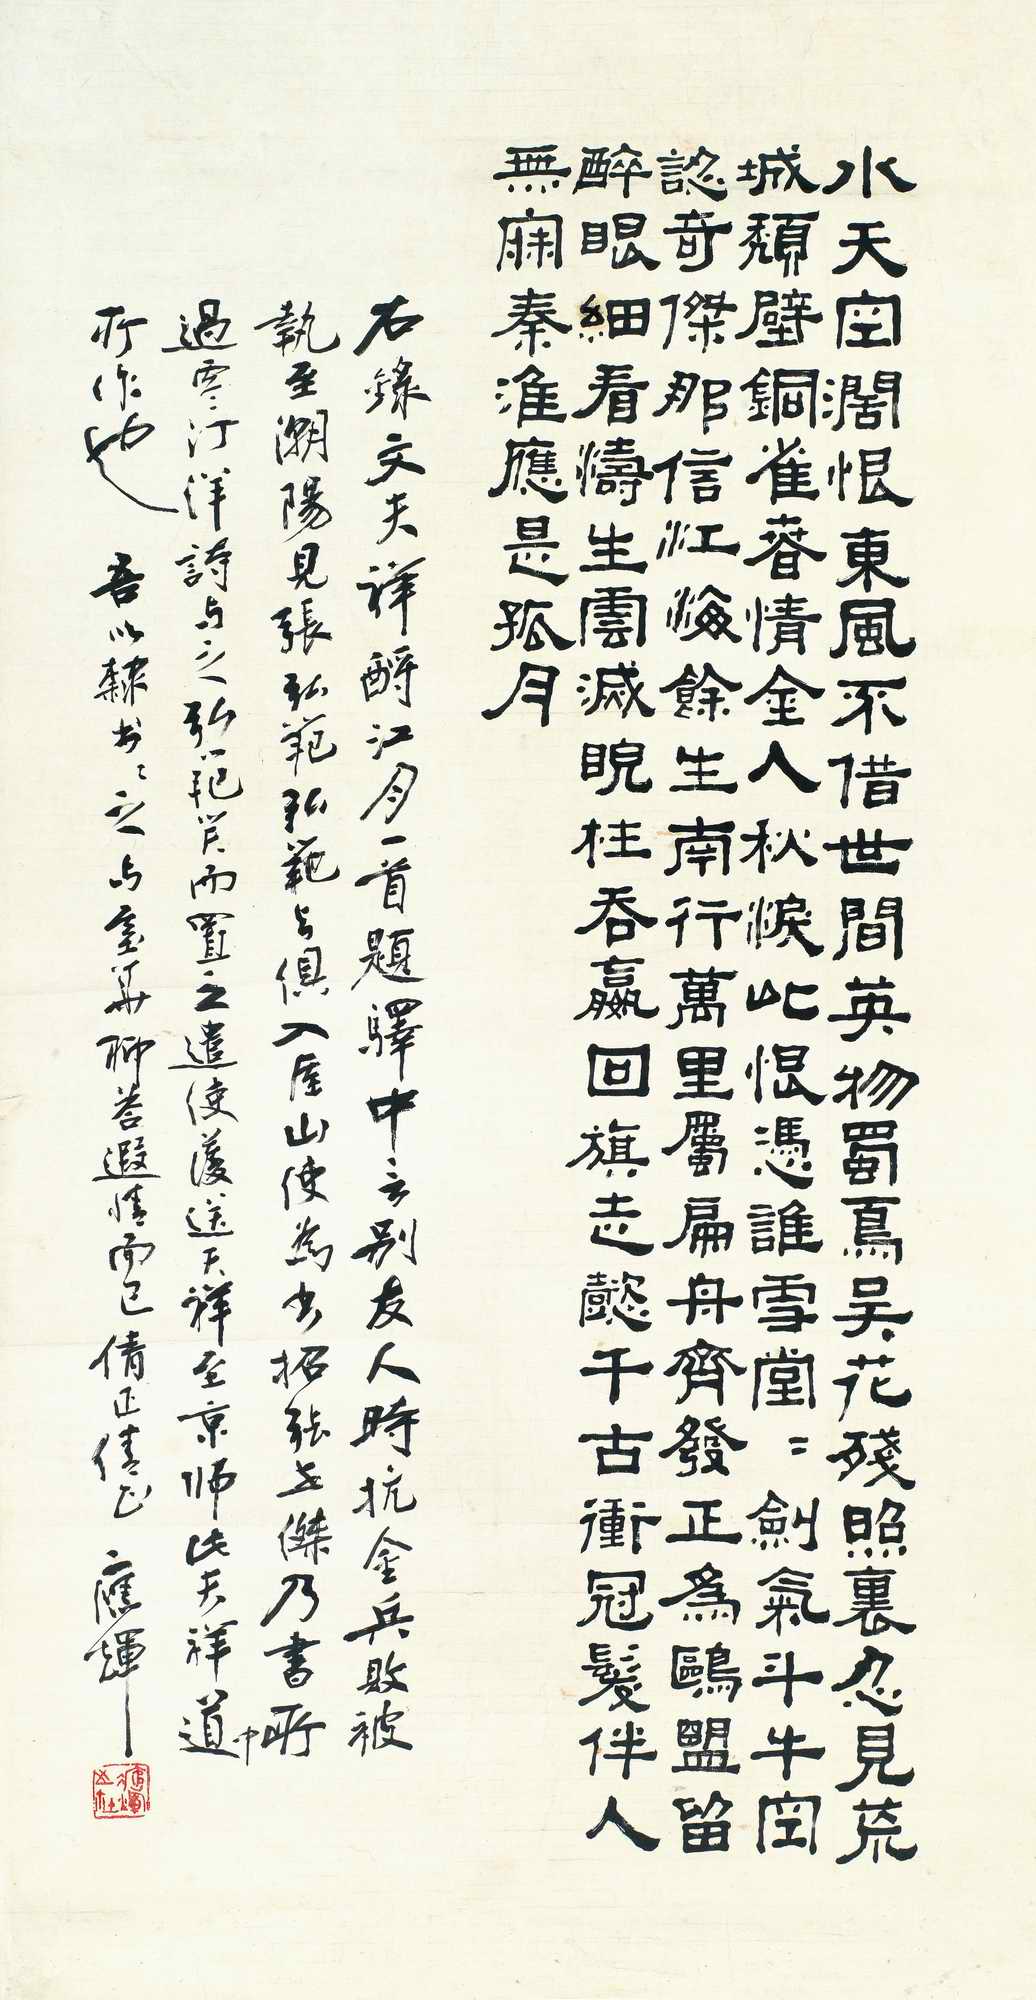 水天空濶恨東風不借世間英物蜀鳥吳花殘照裏忍見荒
城頹壁銅雀春情金人秋淚此恨憑誰雪堂〻劍氣斗牛空
認奇傑那信江海餘生南行萬里屬扁舟齊發正為鷗盟留
醉眼細看濤生雲滅睨柱吞嬴回旗走懿千古衝冠髮伴人
無寐秦淮應是孤月
右錄文天祥酹江月一首題驛中言别友人時抗金兵敗被
執至潮陽見張弘範弘範与俱入厓山使為书招張世傑乃書所
過零汀洋詩与之弘範笑而置之遣使護送天祥至京师此天祥道中
所作也 吾以隸书〻之与 聊答遐情而已倩正倩正 應輝